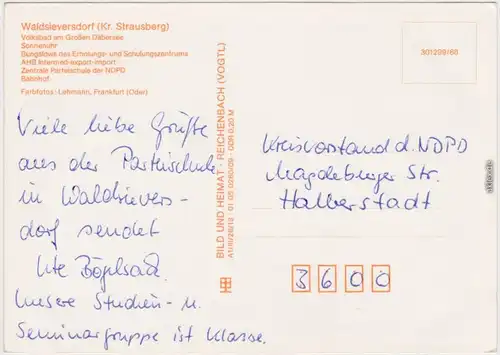 Waldsieversdorf (Kr. Strausberg)
Volksbad am Großen Däbersee
Sonnenuhr
Bungalows des Erholungs- und Schulungszentrums
AHB Intermed-export-import
Zentrale Parteischule der NDPD
Bahnhof
Farbfotos: Lehmann, Frankfurt (Oder)
301299/60
Viele liebe Grüße
aus der Parteischule
in Waldsievers-
dorf sendet
Ute
Unsere Studien- u.
Seminargruppe ist Klasse.
BILD UND HEIMAT · REICHENBACH (VOGTL)
A1/III/26/13 01 05 0260/09 · DDR 0,20 M
Kreisvorstand d. NDPD
Magdeburger Str.
Halberstadt
3600